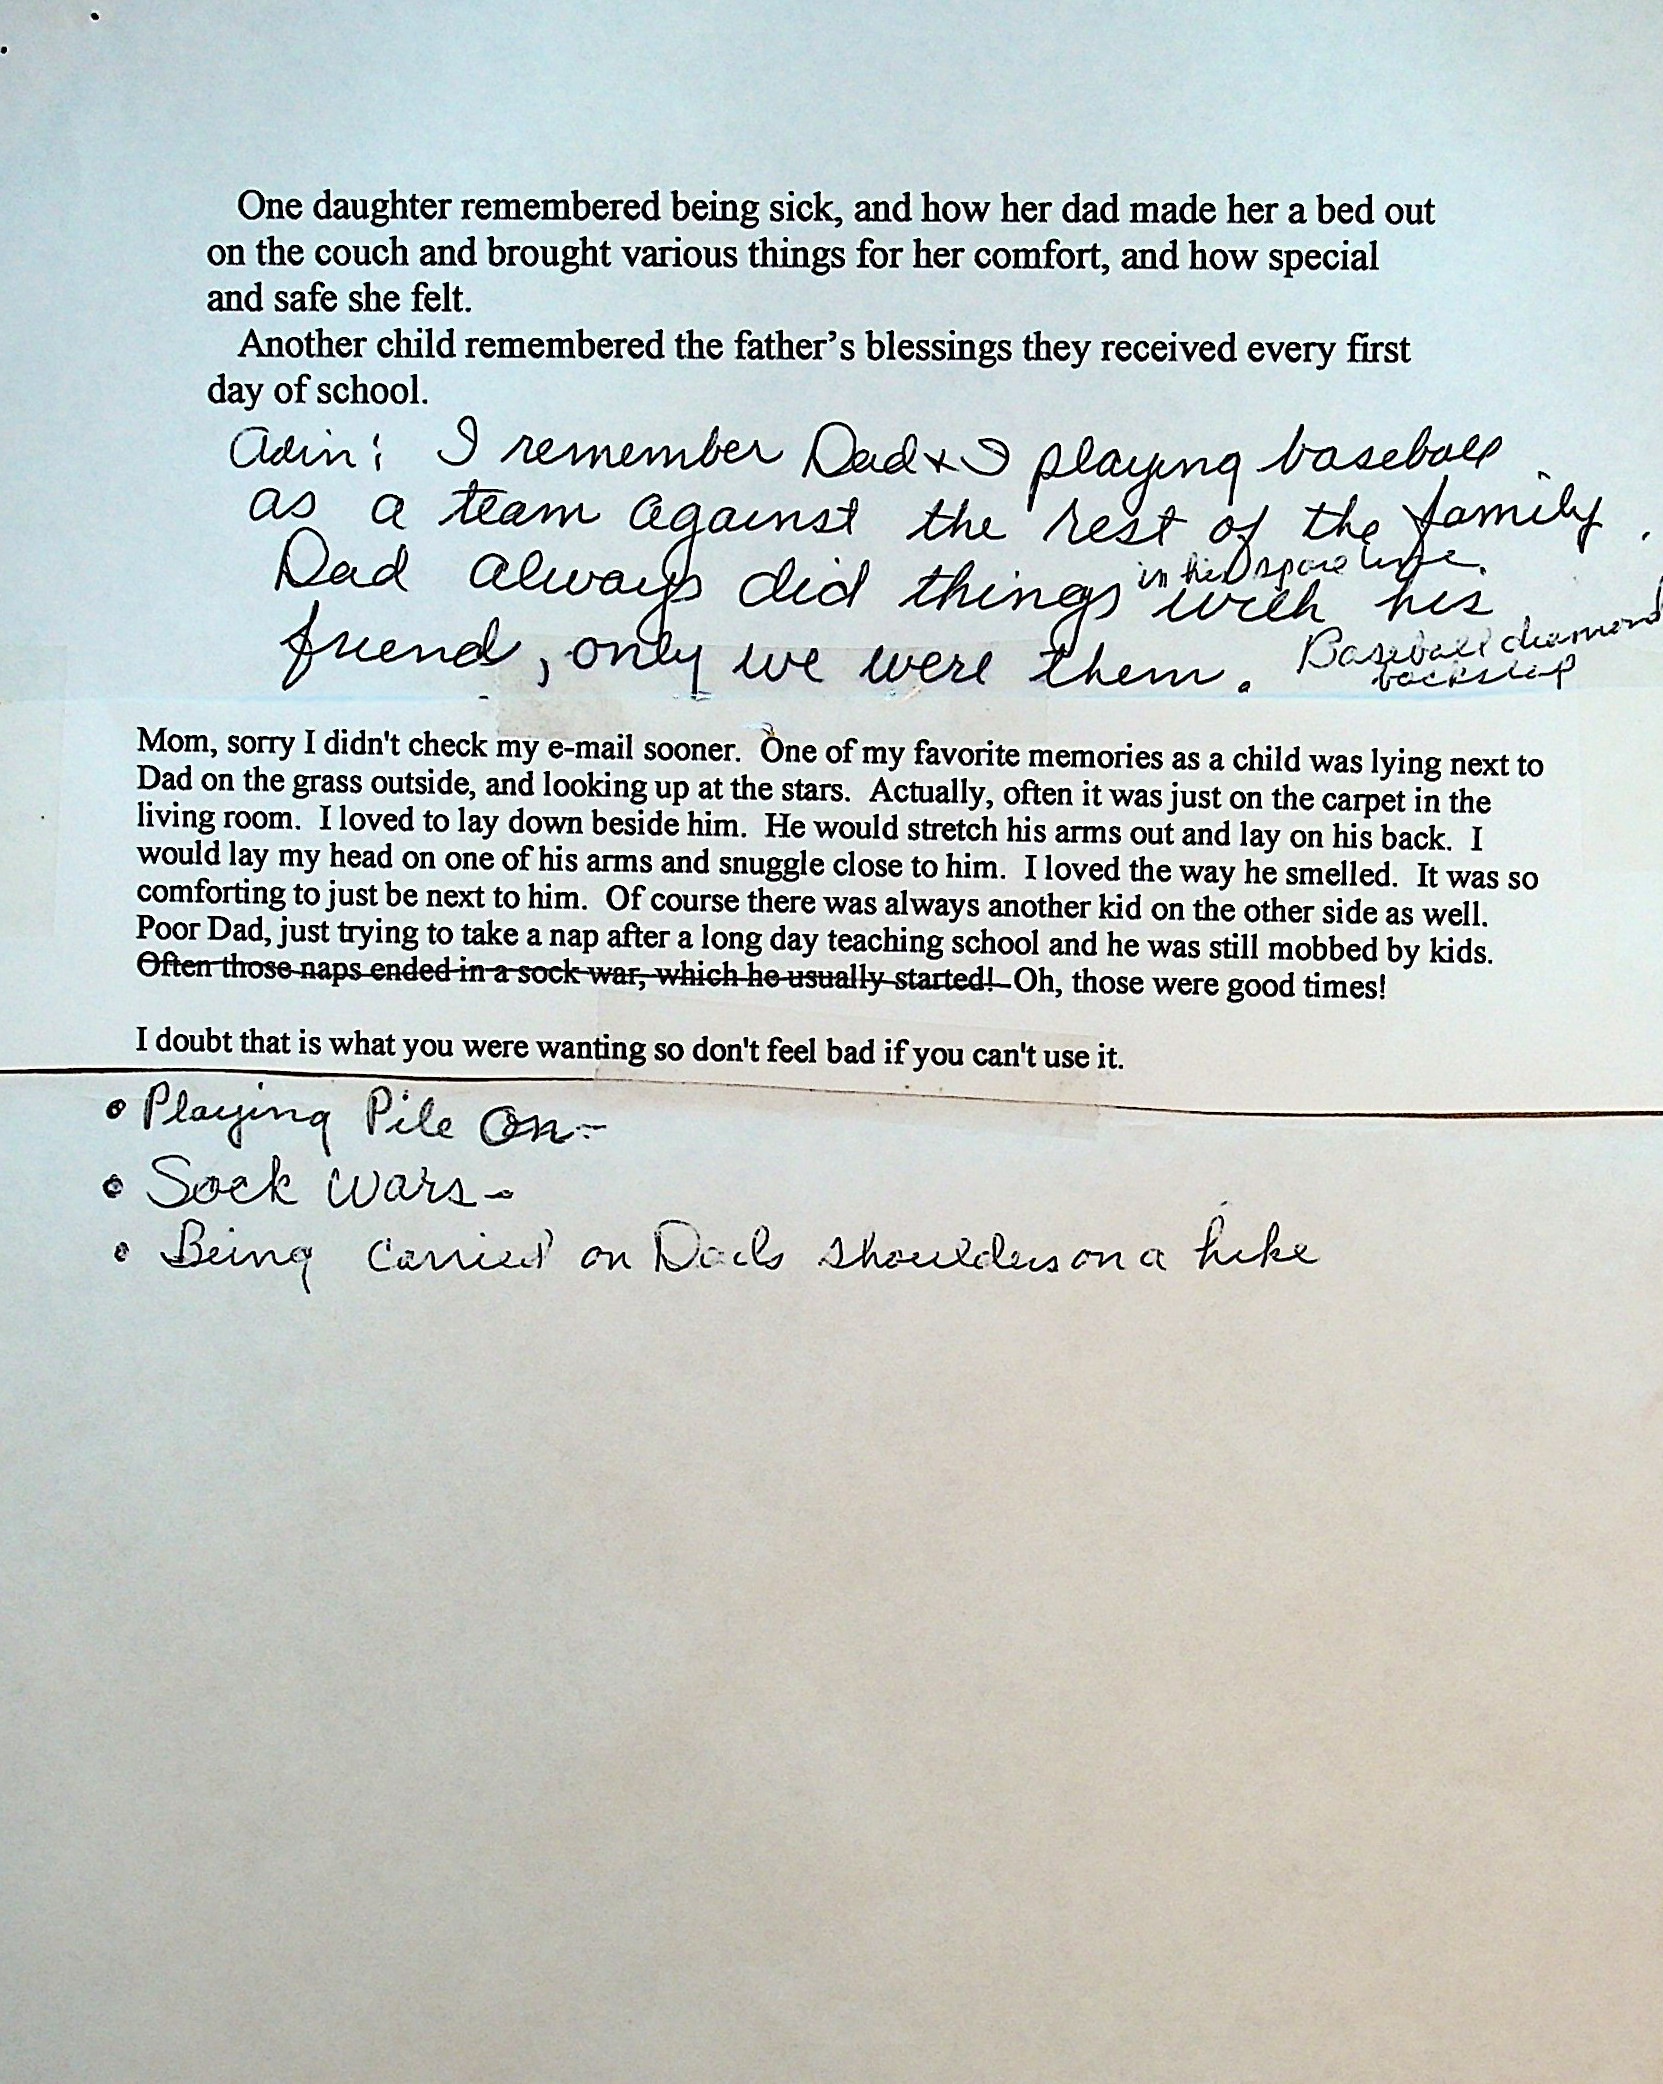 One daughter remembered being sick, and how her dad made her a bed out
on the couch and brought various things for her comfort, and how special
and safe she felt.
Another child remembered the father’s blessings they received every first
day of school.
Adin: I remember Dad & I playing baseball
as a team against the rest of the family.
Dad always did things in his spare time with his
friend, only we were them. Baseball diamond
backstop
Mom, sorry I didn't check my e-mail sooner. One of my favorite memories as a child was lying next to
Dad on the grass outside, and looking up at the stars. Actually, often it was just on the carpet in the
living room. I loved to lay down beside him. He would stretch his arms out and lay on his back. I
would lay my head on one of his arms and snuggle close to him. I loved the way he smelled. It was so
comforting to just be next to him. Of course there was always another kid on the other side as well.
Poor Dad, just trying to take a nap after a long day teaching school and he was still mobbed by kids.
Often those naps ended in a sock war, which he usually started! Oh, those were good times!
I doubt that is what you were wanting so don't feel bad if you can't use it.
• Playing Pile On-
• Sock wars-
• Being carried on Dads shoulders on a hike